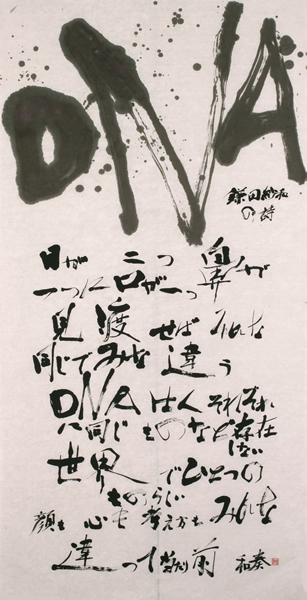 DNA
鎌田紗和
の詩
目が二つ鼻が
一つに口が一つ
見渡せばみんな
同じでみな違う
DNAは人それぞれ
に同じものなど存在
しない
世界でひとつの
ものらしい
顔も心も考え方もみんな
違って当たり前
和奏